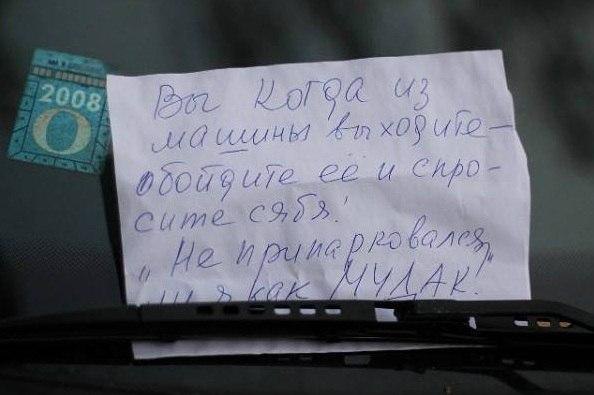 2008
О
Вы когда из
машины выходите —
обойдите её и спро-
сите сябя!
„Не припарковался
ли я как МУДАК!"